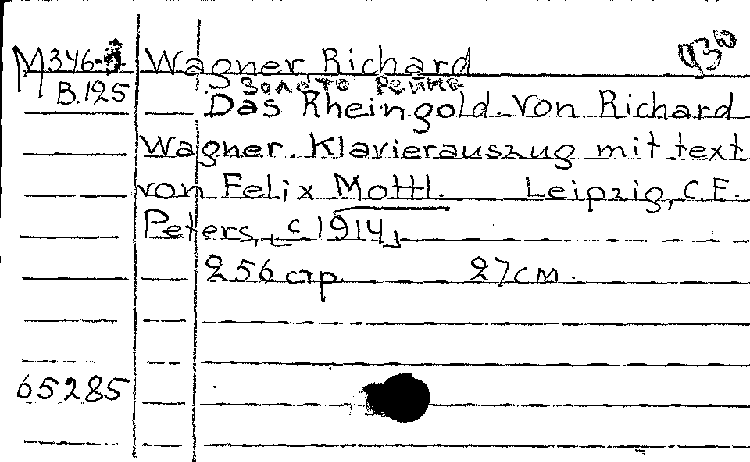 M346- Wagner, Richard 930
B.125 Золото Рейна
Das Rheingold. Von Richard
Wagner. Klavierauszug mit text
von Felix Mottl. Leipzig, C.F.
Peters, [c 1914]
256 стр. 27 см.
65285